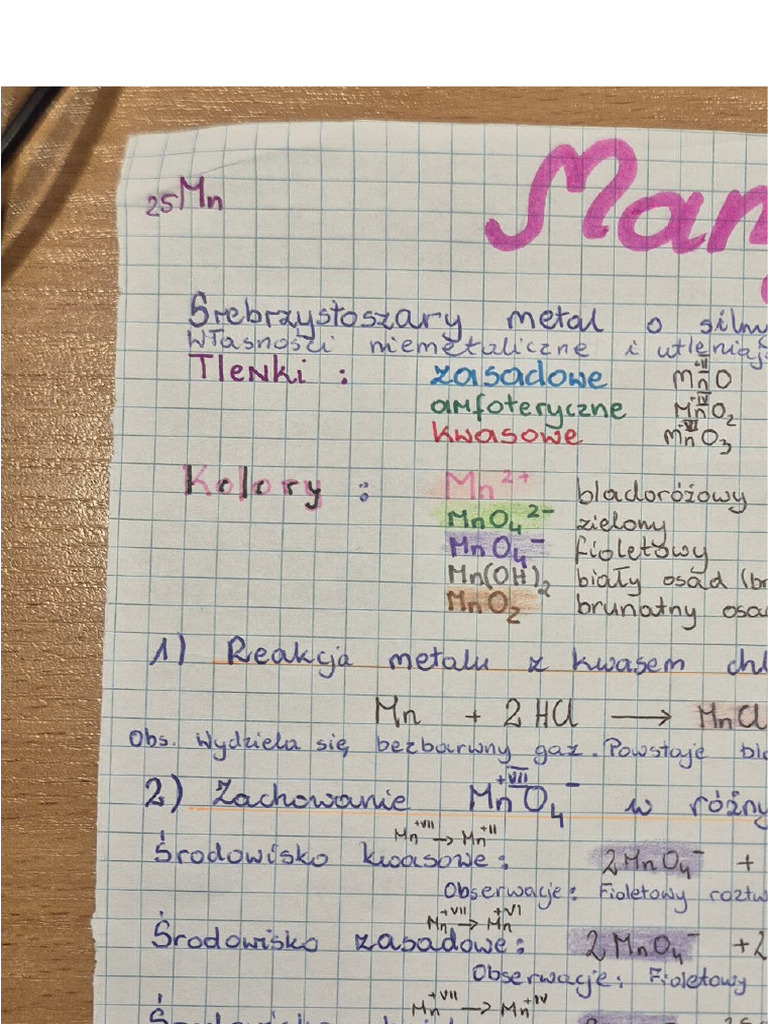 ₂₅Mn
Man
Srebrzystoszary metal o silny
Własności niemetaliczne i utleniają
Tlenki : zasadowe +II MnO
amfoteryczne +IV MnO₂
kwasowe +VI MnO₃
Kolory : Mn²⁺ bladoróżowy
MnO₄²⁻ zielony
MnO₄⁻ fioletowy
Mn(OH)₂ biały osad (br
MnO₂ brunatny osa
1) Reakcja metalu z kwasem chl
Mn + 2 HCl → MnCl
Obs. Wydziela się bezbarwny gaz. Powstaje bla
2) Zachowanie +VII MnO₄⁻ w różny
Mn +VII → Mn +II
Środowisko kwasowe: 2MnO₄⁻ +
Obserwacje: Fioletowy roztw
Mn +VII → Mn +VI
Środowisko zasadowe: 2MnO₄⁻ +2
Obserwacje: Fioletowy
Mn +VII → Mn +IV